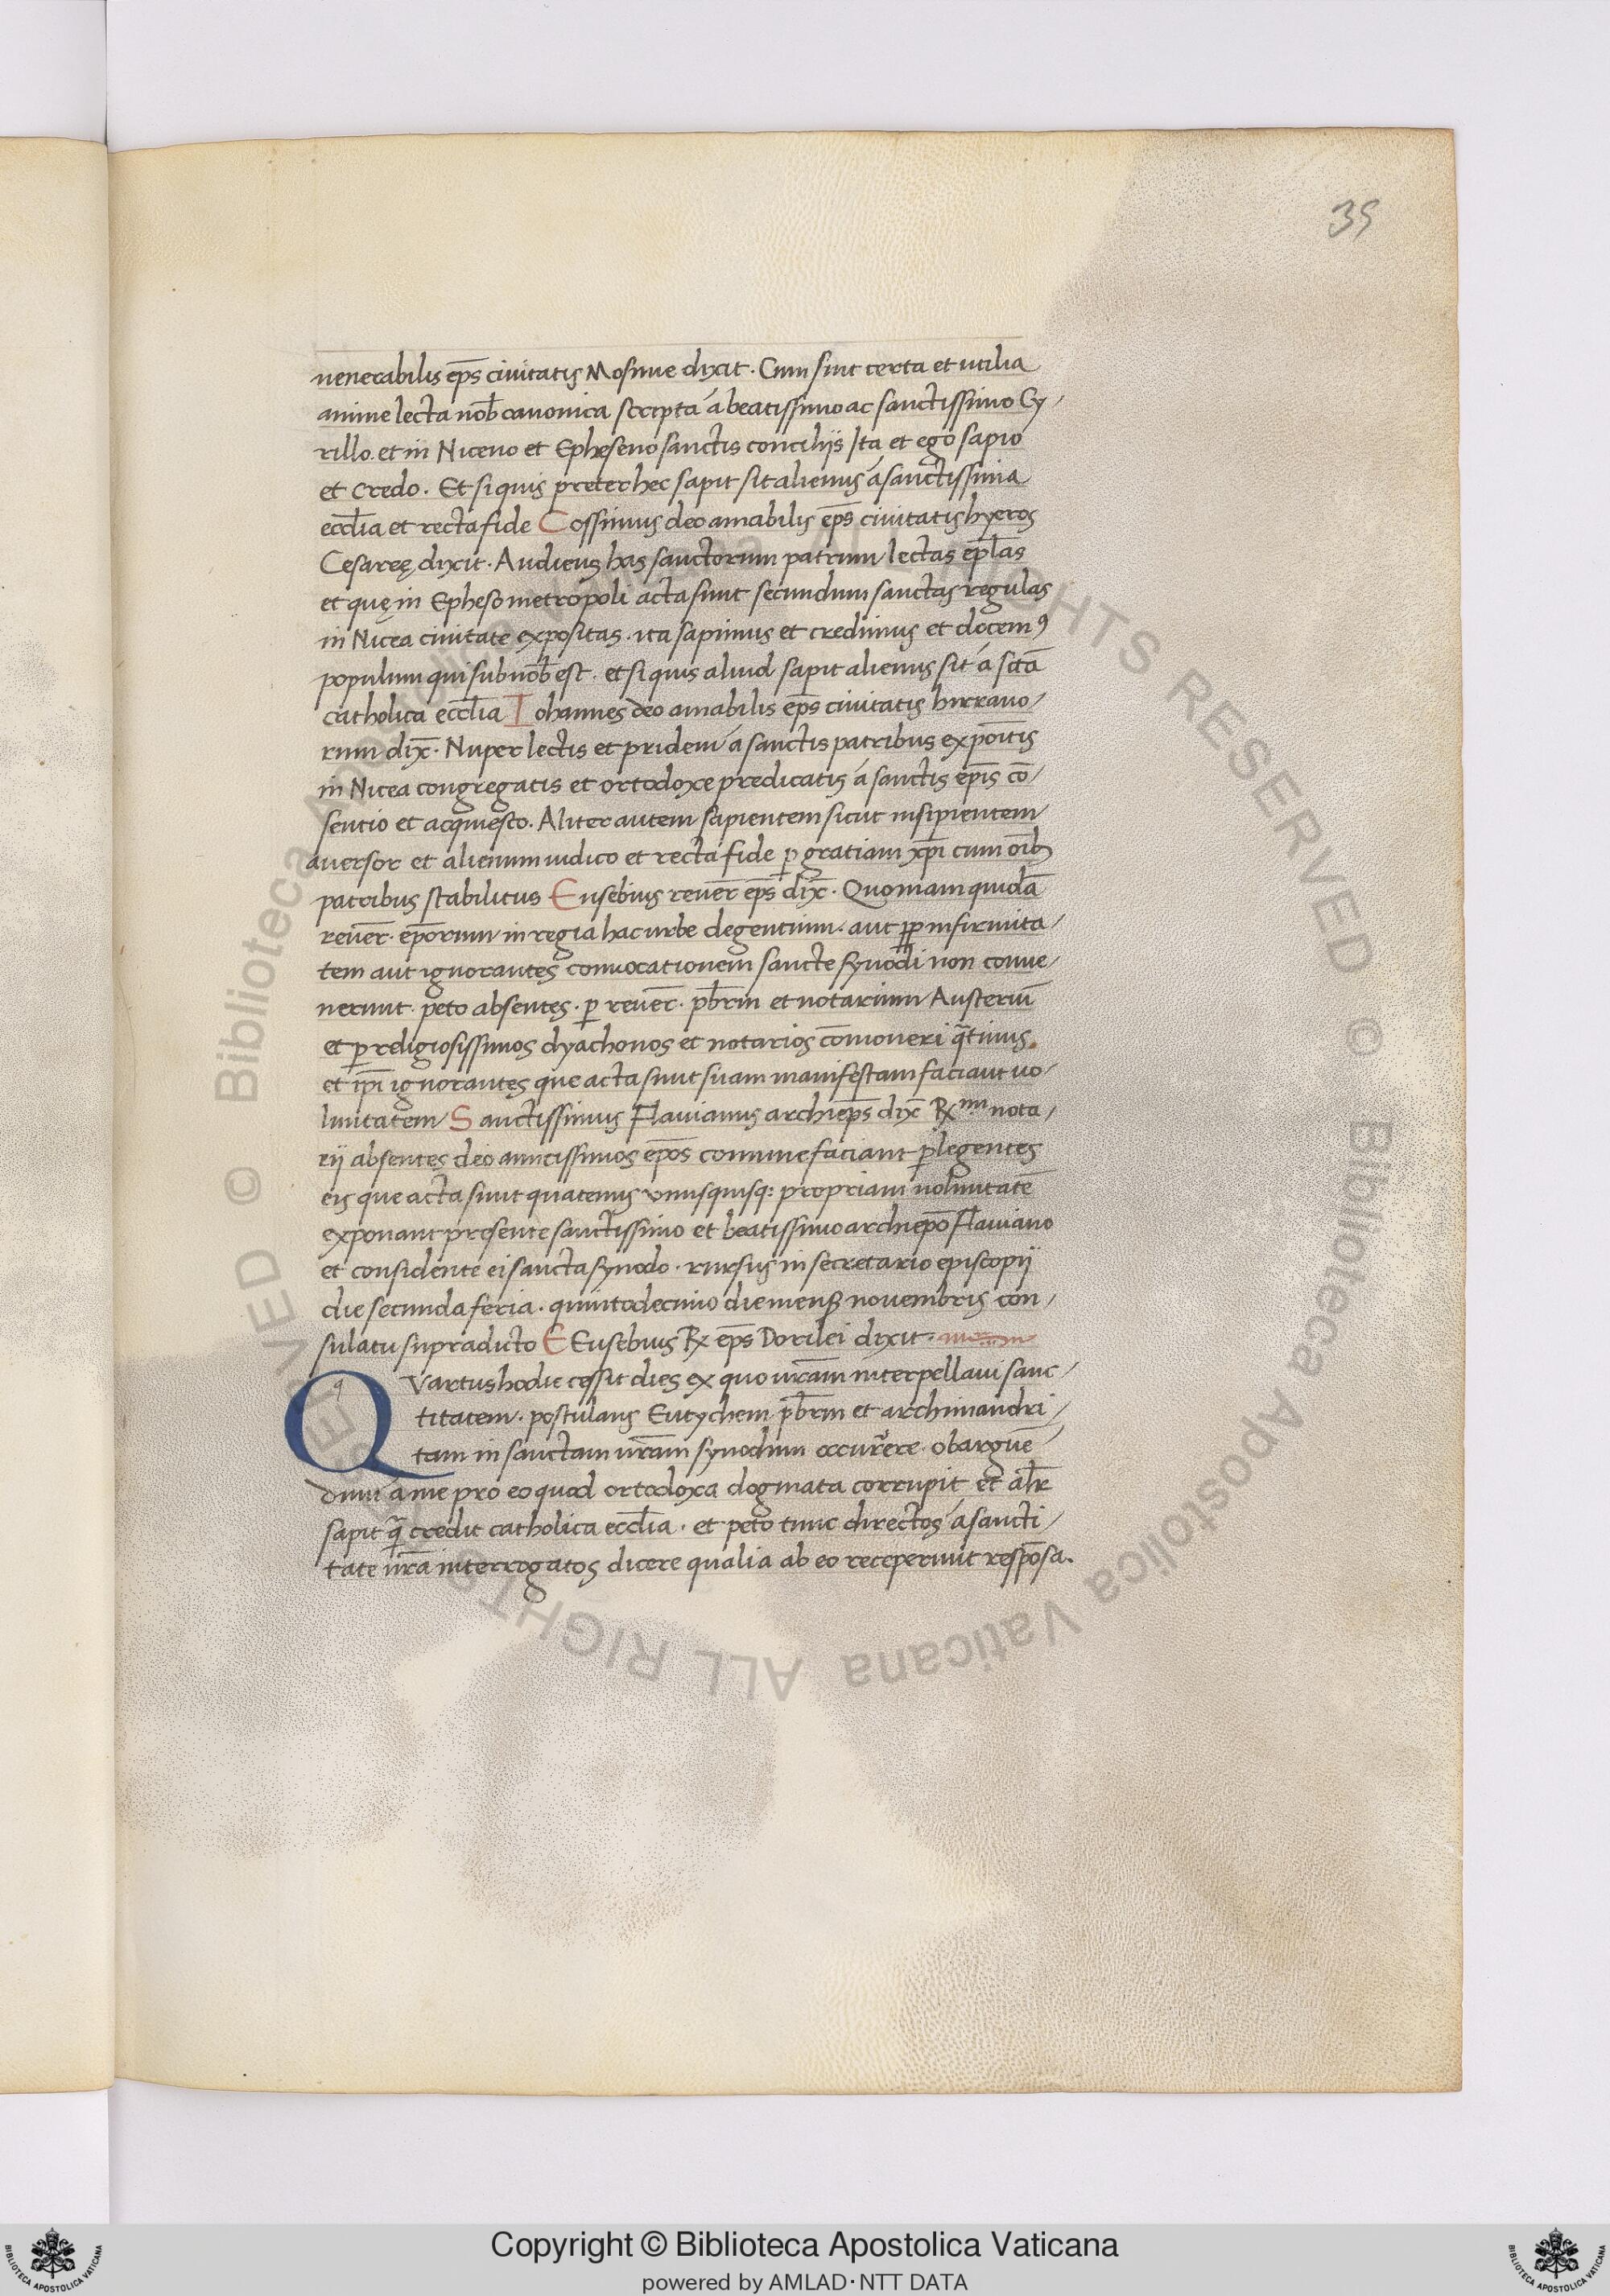 35
venerabilis ep̄s ciuitatis Mosinne dixit. Cum sint certa et utilia
anime lecta nob̄ canonica scripta á beatissimo ac sanctissimo Cy/
rillo. et in Niceno et Epheseno sanctis conciliįs Ita et ego sapio
et credo. Et si quis preter hec sapit sit alienus á sanctissima
eccl̄ia et recta fide Cossimus deo amabilis ep̄s ciuitatis hyeros
Cesareę dixit. Audiens has sanctorum patrum lectas ep̄las
et quę in Epheso metropoli acta sunt secundum sanctas regulas
in Nicea ciuitate expositas. ita sapimus et credimus et docemꝰ
populum qui sub nob̄ est. et si quis aliud sapit alienus sit á sc̄tā
catholica eccl̄ia Iohannes deo amabilis ep̄s ciuitatis hircano/
rum dix̄. Nuper lectis et pridem á sanctis patribus expōitis
in Nicea congregatis et ortodoxe predicatis á sanctis ep̄is cō/
sentio et acquiesco. Aliter autem sapientem sicut insipientem
auersor et alienum iudico et recta fide ꝑ gratiam xp̄i cum oīb
patribus stabilitus Eusebius reuer̄ ep̄s dix̄. Quoniam quidā
reuer̄. ep̄orum in regia hac urbe degentium. aut ꝓp infirmita/
tem aut ignorantes conuocationem sancte synodi non conue/
nerunt. peto absentes. ꝑ reuer̄. pb̄rm et notarium Austeriū
et ꝑ religiosissimos dyachonos et notarios cōmoneri q̄tinus.
et ip̄i ignorantes que acta sunt suam manifestam faciant uo/
luntatem Sanctissimus Flauianus archiep̄s dix̄ R̄x mi nota/
rij absentes deo amicissimos ep̄os commonefaciant ꝑlegentes
eis que acta sunt quatenus vnusquisq: propriam uoluntatē
exponant presente sanctissimo et beatissimo archiep̄o Flauiano
et considente ei sancta synodo. rursus in secretario episcopij
die secunda feria. quintodecimo die mens̄ nouembris con/
sulatu supradicto E Eusebius Rx ep̄s Dorilei dixit.
QVartus hodie cessit dies ex quo ur̄am interpellaui sanc/
titatem. postulans Eutychem pb̄rm et archimandri/
tam in sanctam ur̄am synodum occurrere. obarguē/
dum á me pro eo quod ortodoxa dogmata corrupit et al̄r
sapit q̄ credit catholica eccl̄ia. et peto tunc directos á sancti/
tate ur̄a interrogatos dicere qualia ab eo receperunt respōsa.
Copyright © Biblioteca Apostolica Vaticana
powered by AMLAD·NTT DATA